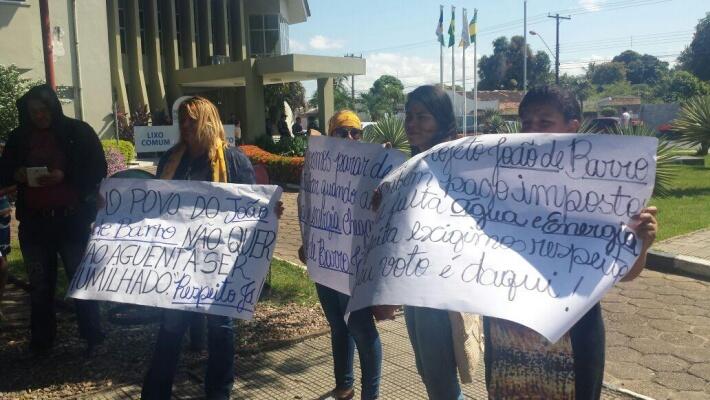 LIXO
COMUM
O POVO DO João
de Barro NÃO QUER
NÃO AGUENTA SER
HUMILHADO. Respeito Já!
parar de
quando a
chega
de Barro
João de Barro
pago imposto
falta água e Energia
exigimos respeito
voto é daqui!